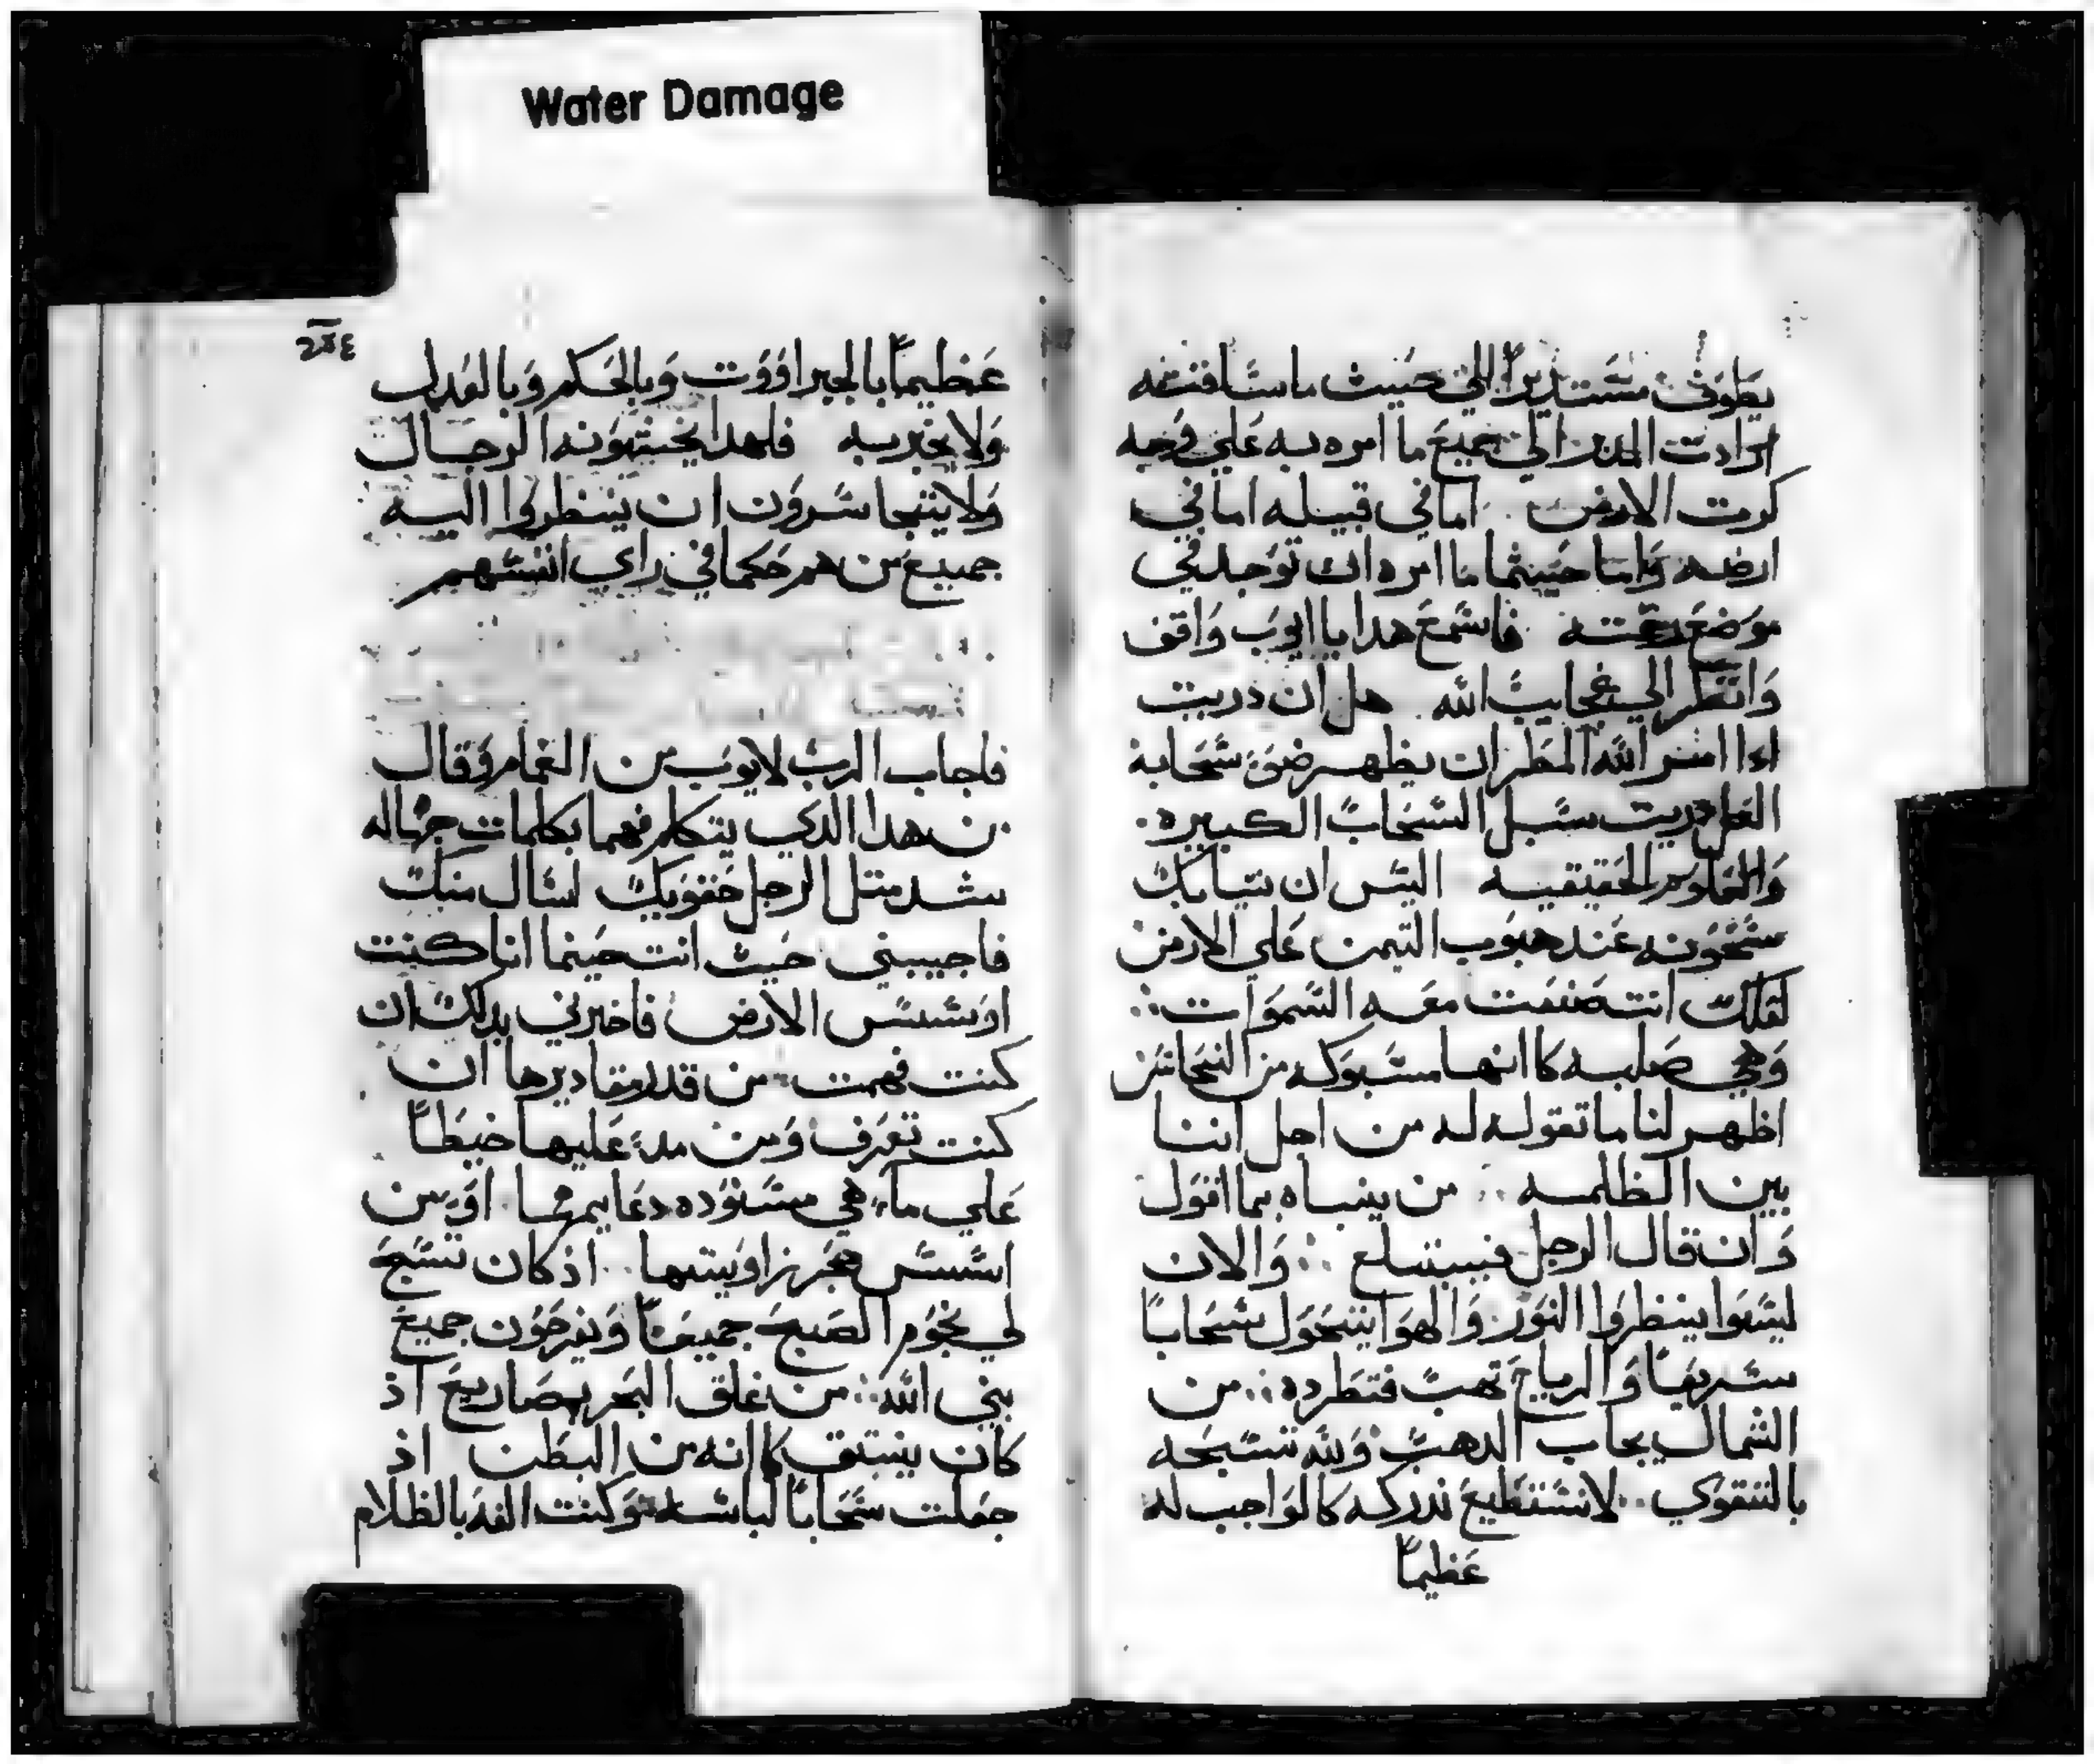 Water Damage
يطوف مستديراً الي حيث ما سافتقه
ارادت المدبر الي جميع ما امره به علي وجه
كرت الارض اما في قبيله اما في
ارضه واما حيثما ما امره ان توجد في
موضع رحمته فاسمع هدا يا ايوب واقف
وانظر الي عجايب الله هل ان دريت
اءا امر الله المطر ان يظهر ضيَ سحابة
العل دريت سبل السحاب الكبيره
والعلوم الحقيقيه اليس ان تيابك
سخونه عند هبوب التيمن علي الارض
لعلك انت صنعت معه السموات
وهي صلبه كاانها مسبوكه من النحاس
اظهر لنا ما تقوله له من اجل اننا
بين الظلمه من ينباه بما اقول
وان قال الرجل فيبتلع والان
ليسوا ينظروا النور والهوا يتحول سحاباً
سريعاً والرياح تهب فتطرده من
الشمال يجاب الدهب ولله تسبحه
بالتقوي لا نستطيع ندركه كالواجب له
عظيماً
عظيماً بالجبراووت وبالحكم وبالعدل
ولا يخبر به فلهدا يخيتهونه الرجال
ولا يتجاسرون ان ينظروا اليه
جميع من هم حكما في راي انفسهم
فاجاب الرب لايوب من الغمام وقال
من هدا الدي يتكلم فهما بكلمات جهاله
سد متل الرجل حقويك لسال منك
فاجيبني حيث انت حينما انا كنت
اوسس الارض فاخبرني بدلك ان
كنت فهمت من قدر مقاديرها ان
كنت تعرف ومن مدَ عليها خيطاً
علي ماء هي مسنوده دعايمها او من
اسس حجر زاويتها اذ كان تسبح
لي نجوم الصبح جميعاً ويفرحون جميع
بني الله من غلق البحر بمصاريع اذ
كان ينبتق كاانه من البطن اذ
جعلت سحاباً لباسه وكنت الفه بالظلام